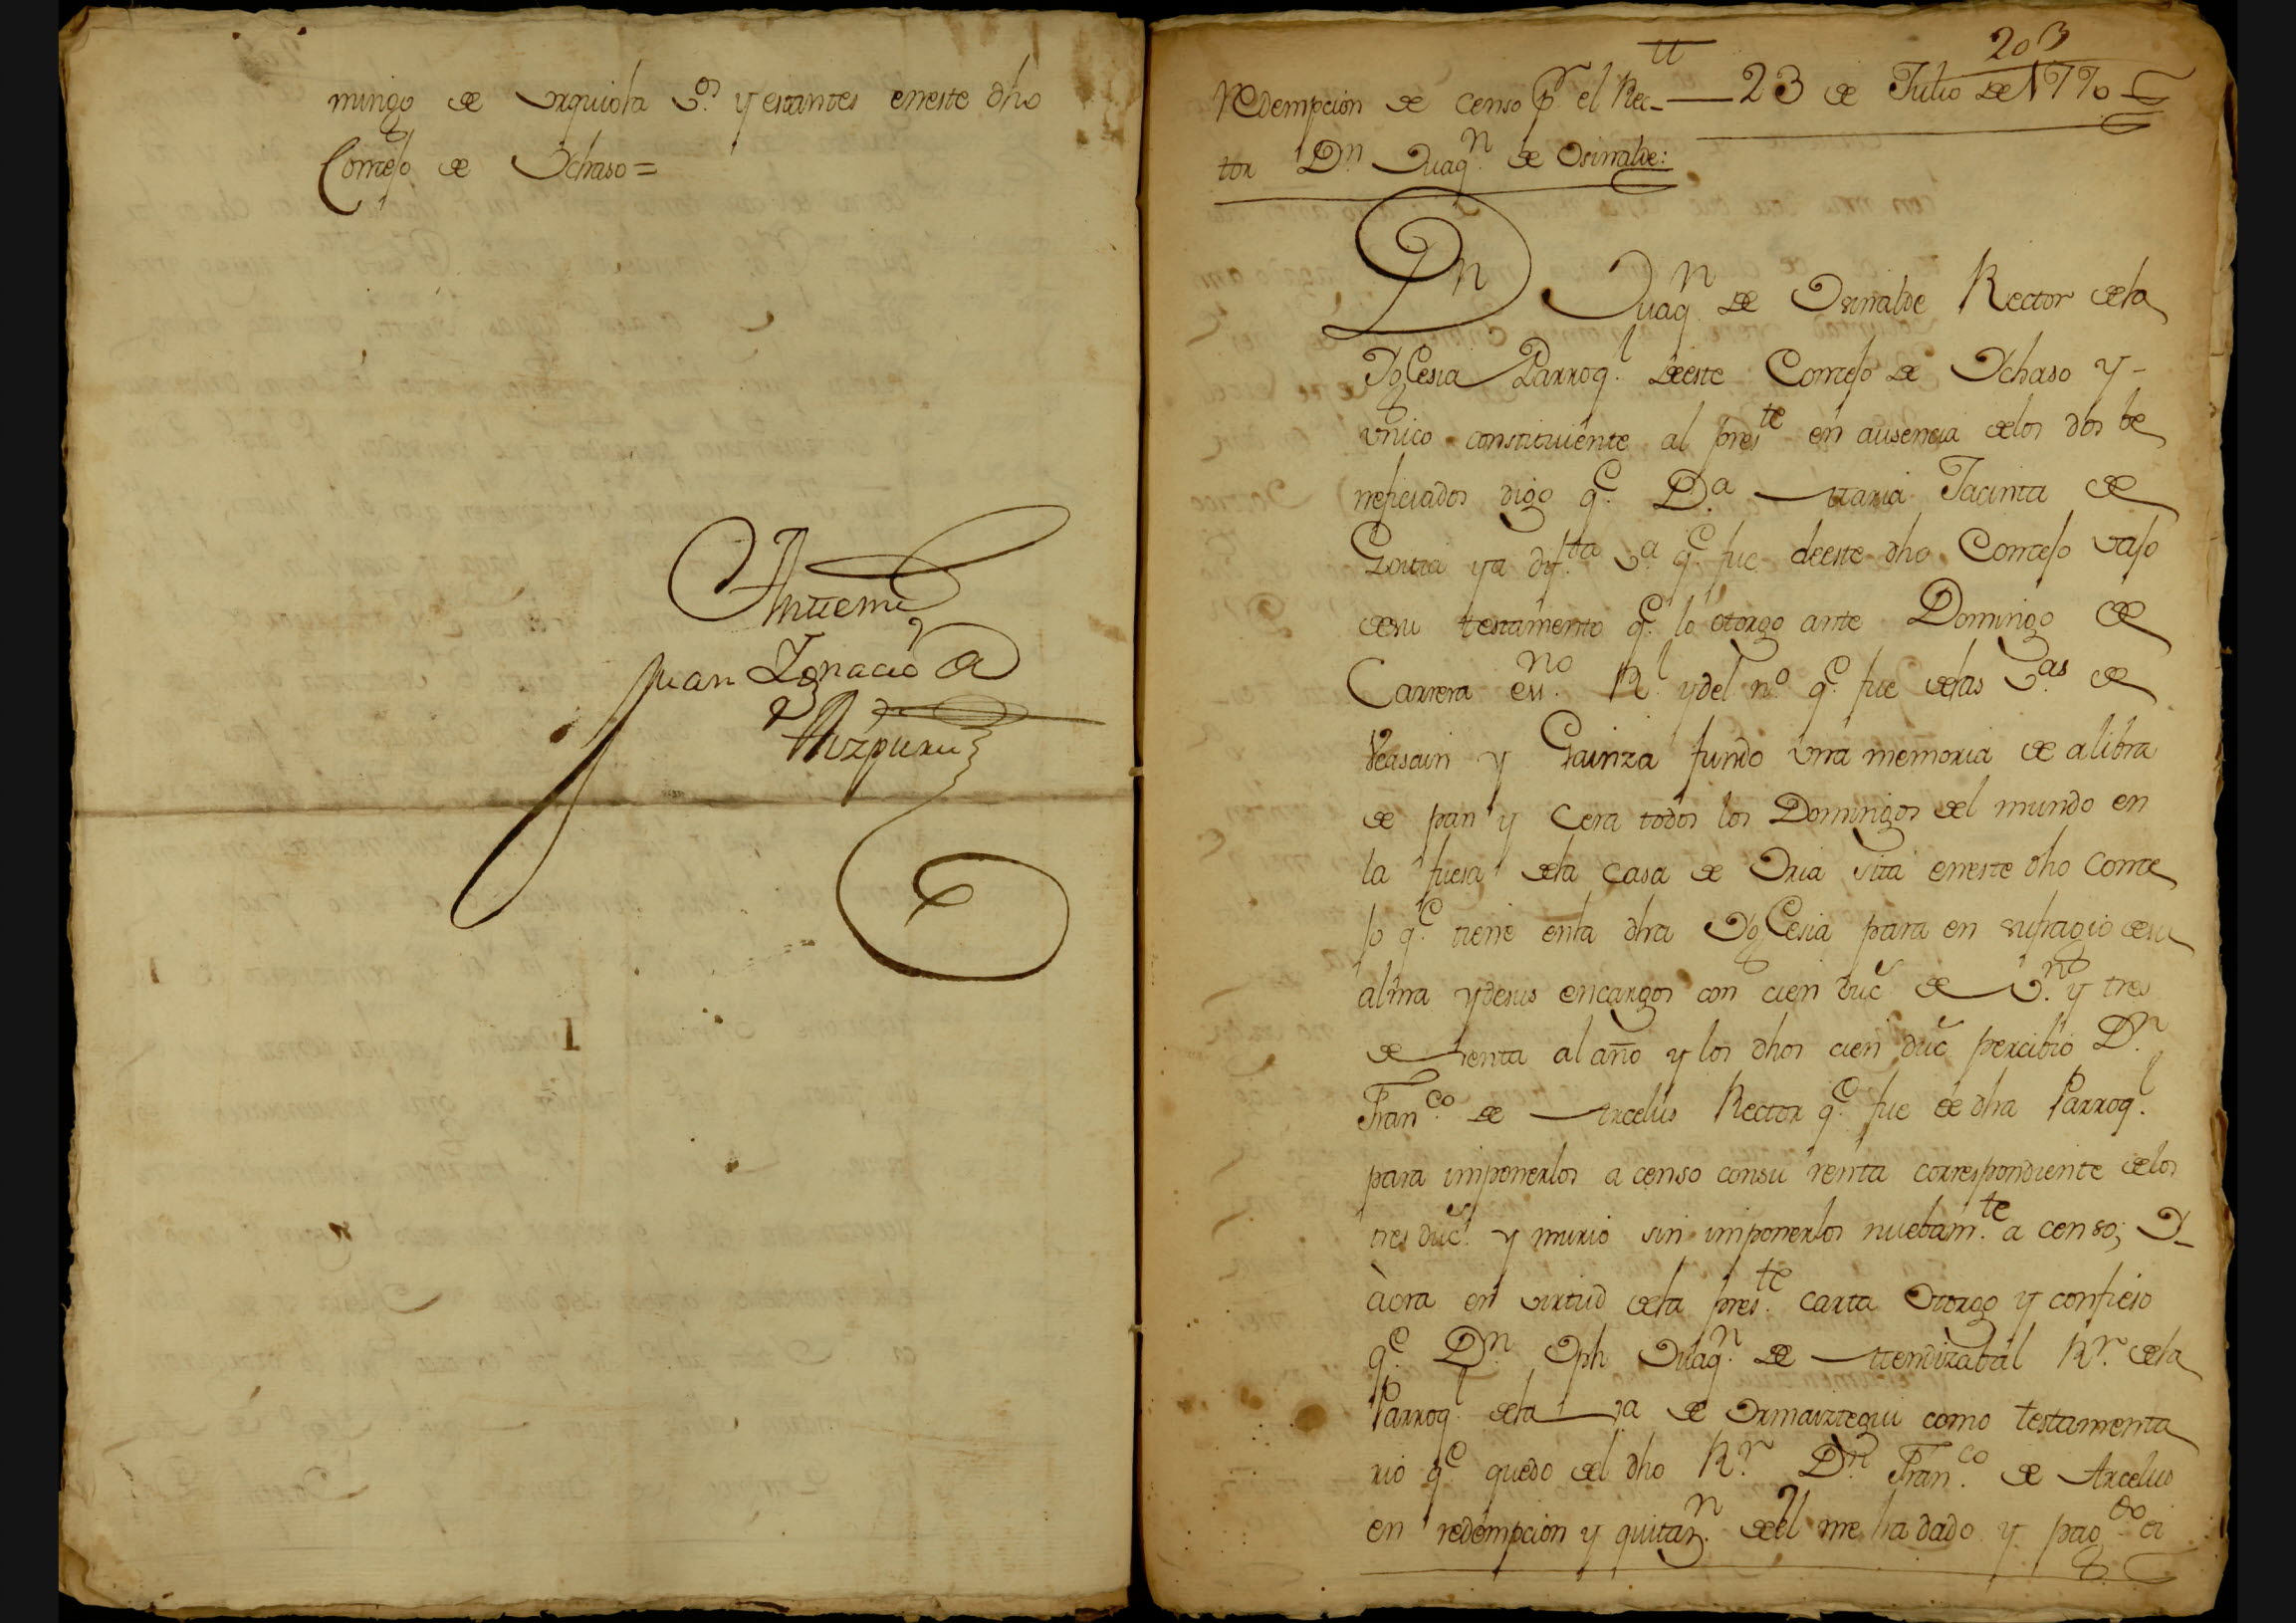 mingo de Urquiola v.os y estantes eneste dho
Concejo de Ychaso =
Antemi
Juan Ignacio de
Aizpuru
203
Redempcion de censo pr. el Rec- 23 de Julio de 1770
tor Dn. Juaqn. de Osinalde:
Dn Juaqn de Osinalde Rector dela
Yglesia Parroql. deeste Concejo de Ychaso y-
vnico constituiente al preste en ausencia delos dos be
neficiados digo qe. Da. Maria Jacinta de
Goitia ya dif.ta v.a qe. fue deeste dho Concejo vajo
desu testamento qe. lo otorgo ante Domingo de
Carrera essno. Rl. ydel no. qe. fue delas V.as de
Veasain y Gainza fundo vna memoria de alibra
de pan y Cera todos los Domingos del mundo en
la fuesa dela Casa de Oria sita eneste dho Conce
jo qe. tiene enla dha Yglesia para en sufragio desu
alma ydesus encargos con cien duc.s de v.no y tres
de renta al año y los dhos cien duc.s percibio Dn.
Franco. de Arcelus Rector qe. fue de dha Parroql.
para imponerlos a censo consu renta correspondiente delos
tres duc.s y murio sin imponerlos nuebam.te a censo; Y-
àora en virtud dela pres.te carta Otorgo y confieso
qe. Dn. Jph Juaqn. de Mendizabal Rr. dela
Parroql. dela Va de Ormaiztegui como testamenta
rio qe. quedo del dho Rr. Dn. Franco. de Arcelus
en redempcion y quitazn. deel me ha dado y pagdo ei